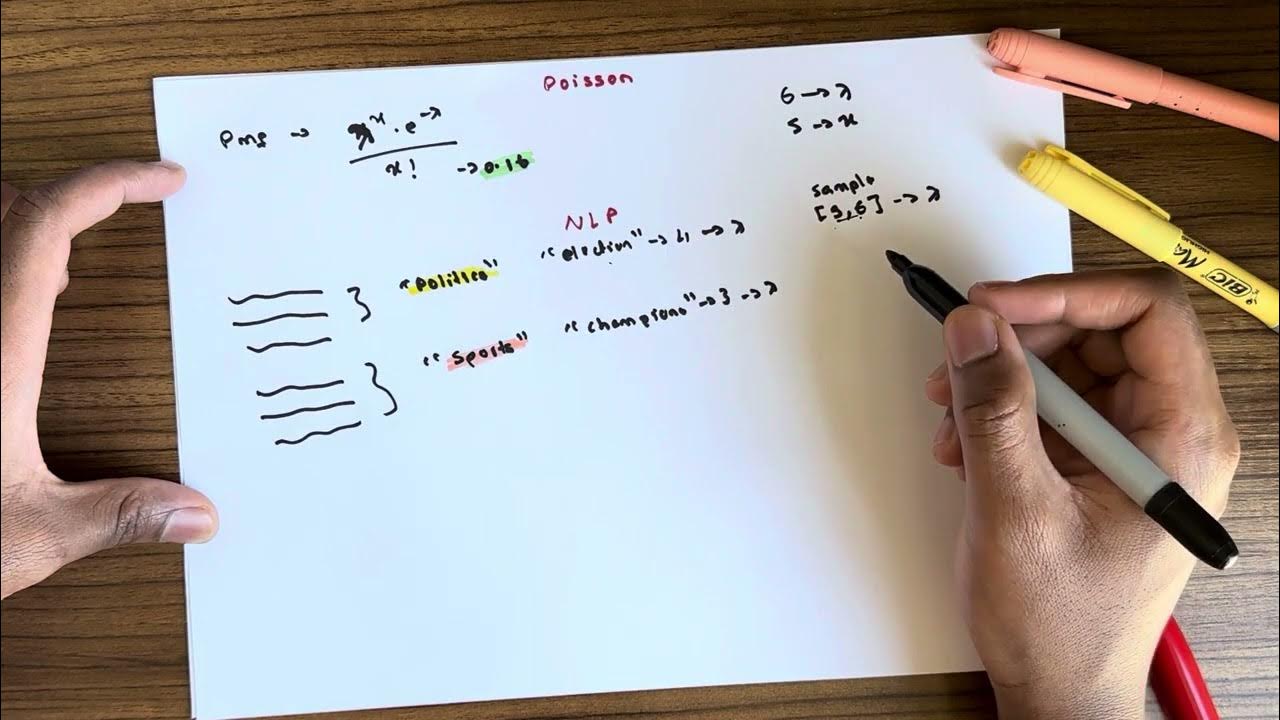 Poisson
PMF → λˣ · e^-λ
x! → 0.16
6 → λ
5 → x
sample
[3,6] → λ
NLP
"politics" "election" → 4 → λ
"sports" "champions" → 3 → λ
BIC